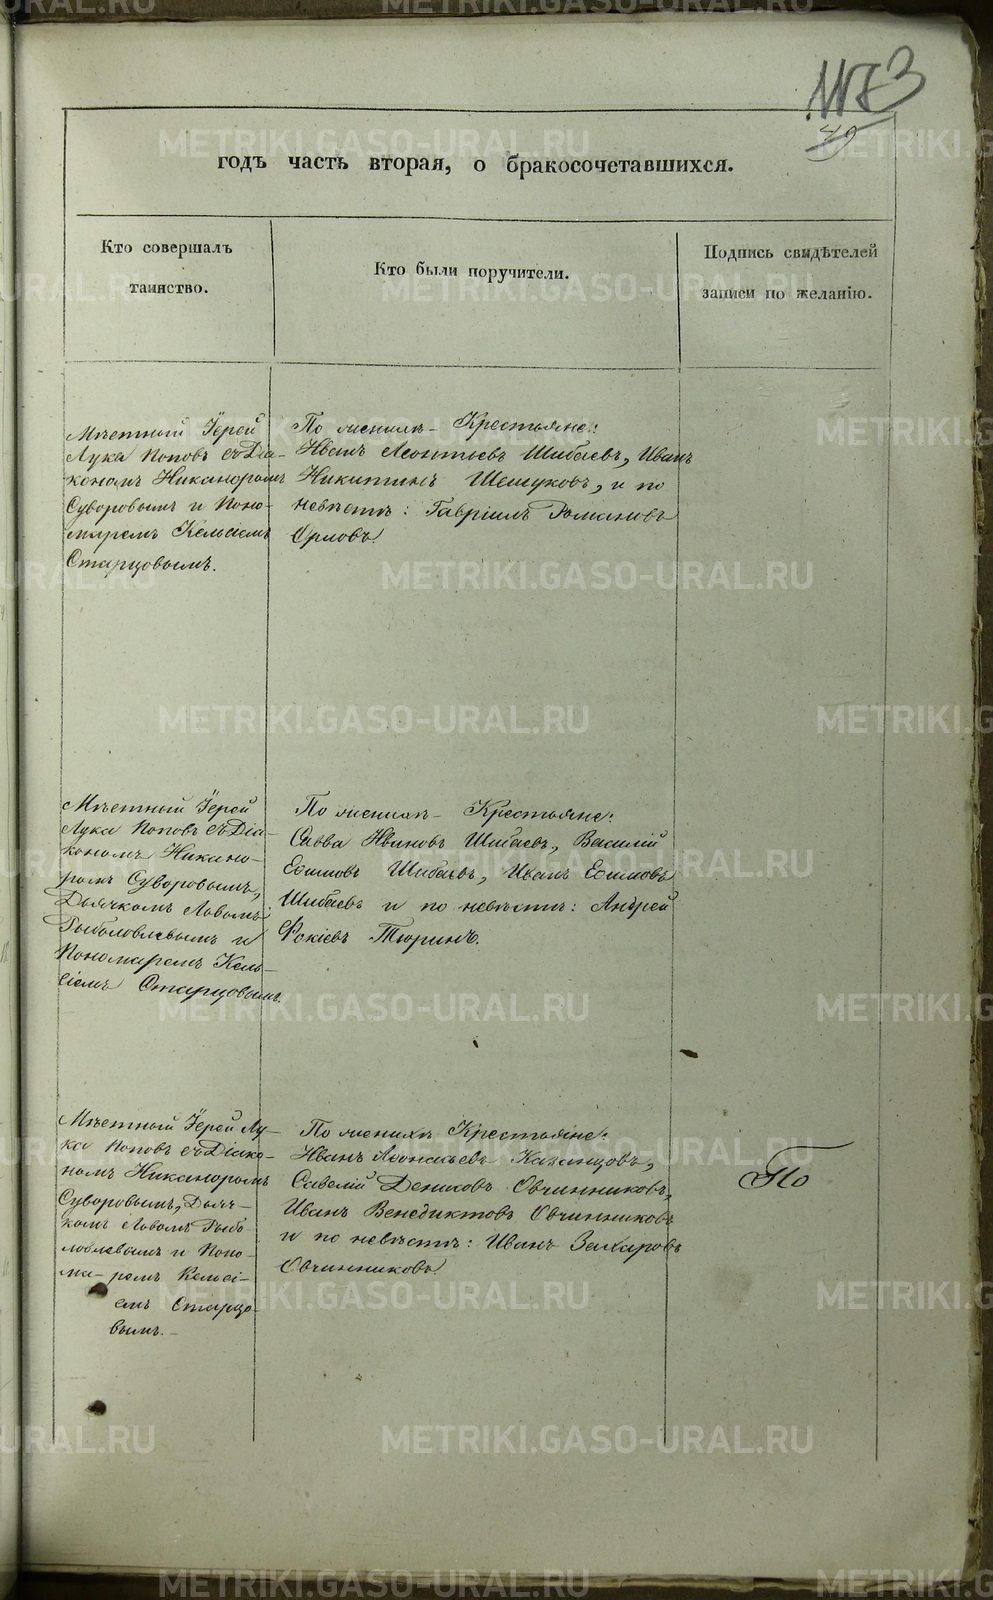 1173
49
годъ часть вторая, о бракосочетавшихся.
Кто совершалъ
таинство.
Кто были поручители.
Подпись свидѣтелей
записи по желанію.
Мѣстный Іерей
Лука Поповъ съ Діа-
кономъ Никаноромъ
Суворовымъ и Поно-
маремъ Кельсіемъ
Старцовымъ.
По женихѣ - Крестьяне:
Иванъ Леонтьевъ Шибаевъ, Иванъ
Никитинъ Шешуковъ, и по
невѣстѣ: Гавріилъ Романовъ
Орловъ.
Мѣстный Іерей
Лука Поповъ съ Діа-
кономъ Никано-
ромъ Суворовымъ,
Дьячкомъ Львомъ
Рыболовлевымъ и
Пономаремъ Кель-
сіемъ Старцовымъ.
По женихѣ - Крестьяне:
Савва Ивановъ Шибаевъ, Василій
Ефимовъ Шибаевъ, Иванъ Ефимовъ
Шибаевъ и по невѣстѣ: Андрей
Фокіевъ Тюринъ.
Мѣстный Іерей Лу-
ка Поповъ съ Діако-
номъ Никаноромъ
Суворовымъ, Дьяч-
комъ Львомъ Рыбо-
ловлевымъ и Поно-
ма- ремъ Кельсі-
емъ Старцо-
вымъ. -
По женихѣ Крестьяне:
Иванъ Казанцовъ,
Савелій Овчинниковъ,
Иванъ Венедиктовъ Овчинниковъ
и по невѣстѣ: Иванъ Захаровъ
Овчинниковъ.
По
METRIKI.GASO-URAL.RU